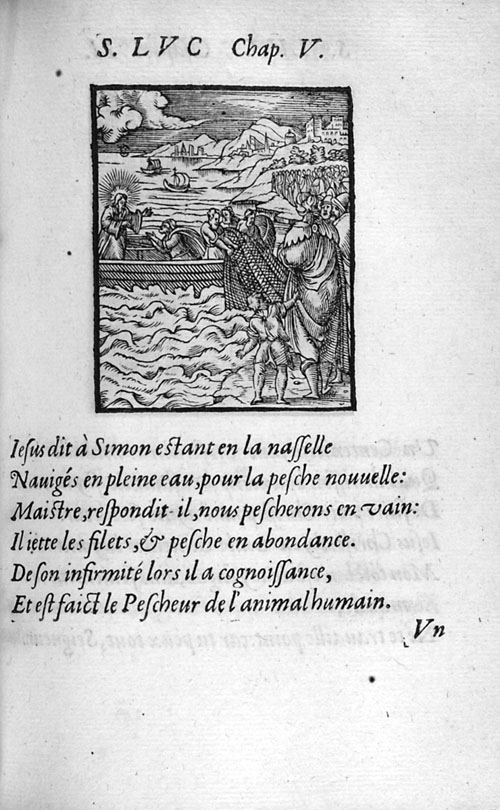 S. LVC Chap. V.
Iesus dit à Simon estant en la nasselle
Nauigés en pleine eau, pour la pesche nouuelle:
Maistre, respondit-il, nous pescherons en vain:
Il iette les filets, & pesche en abondance.
De son infirmité lors il a cognoissance,
Et est faict le Pescheur de l'animal humain.
Vn